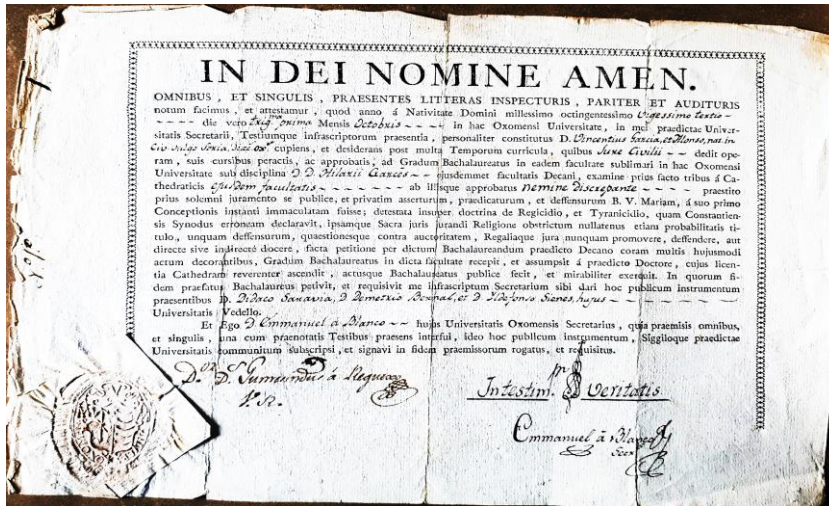 IN DEI NOMINE AMEN.
OMNIBUS, ET SINGULIS, PRAESENTES LITTERAS INSPECTURIS, PARITER ET AUDITURIS
notum facimus, et attestamur, quod anno á Nativitate Domini millessimo octingentessimo Vigessimo tertio -
- - - - die vero trigmo primo Mensis Octobris - - - - in hac Oxomensi Universitate, in mei praedictae Univer-
sitatis Secretarii, Testiumque infrascriptorum praesentia, personaliter constitutus D. Vincentius Garcia, et Alonso, nat. in
Civ. vulgo Soria, Diaec. oxs. cupiens, et desiderans post multa Temporum curricula, quibus Jure Civili - - dedit ope-
ram, suis cursibus peractis, ac approbatis, ad Gradum Bachalaureatus in eadem facultate sublimari in hac Oxomensi
Universitate sub disciplina D. D. Hilarii Garcés - ejusdemmet facultatis Decani, examine prius facto tribus á Ca-
thedraticis ejusdem facultatis - - - - - - ab illisque approbatus nemine discrepante - - - - praestito
prius solemni juramento se publice, et privatim asserturum, praedicaturum, et deffensurum B. V. Mariam, á suo primo
Conceptionis instanti immaculatam fuisse; detestata insuper doctrina de Regicidio, et Tyranicidio, quam Constantien-
sis Synodus erroneam declaravit, ipsamque Sacra juris jurandi Religione obstrictum nullatenus etiam probabilitatis ti-
tulo, unquam deffensurum, quaestionesque contra auctoritatem, Regaliaque jura nunquam promovere, deffendere, aut
directe sive indirecté docere, facta petitione per dictum Bachalaureandum praedicto Decano coram multis hujusmodi
actum decorantibus, Gradum Bachalaureatus in dicta facultate recepit, et assumpsit á praedicto Doctore, cujus licen-
tia Cathedram reverenter ascendit, actusque Bachalaureatus publice fecit, et mirabiliter exercuit. In quorum fi-
dem praefatus Bachalaureus petivit, et requisivit me infrascriptum Secretarium sibi dari hoc publicum instrumentum
praesentibus D. Didaco Saravia, D. Demetrio Bernal, et D. Ildefonso Sienes, hujus - - - - - - -
Universitatis Vedello.
Et Ego D. Emmanuel á Blanco - - hujus Universitatis Oxomensis Secretarius, quia praemisis omnibus,
et singulis, una cum praenotatis Testibus praesens interfui, ideo hoc publicum instrumentum, Siggiloque praedictae
Universitatis communitum subscripsi, et signavi in fidem praemissorum rogatus, et requisitus.
In testim. Veritatis
Emmanuel á Blanco